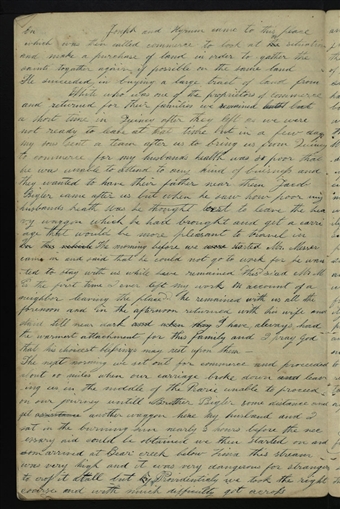 On Joseph and Hyrum came to this place
which was then called commerce to look at the situation
and make a purchase of land in order to gather the
saints together again if possible on the same land
He succeeded in buying a large tract of land from
White who was one of the proprietors of commerce
and returned for their families we remained but
a short time in Quincy after they left as we were
not ready to leave at that time but in a few days
my son sent a team after us to bring us from Quincy
to commerce for my husbands health was so poor that
he was unable to attend to any kind of business and
they wanted to have their father near them Jacob
Bigler came after us but when he saw how poor my
husbands health was he thought best to leave the
waggon which he had brought and get a carri
age that would be more pleasant to travel in
The morning before we were started Mr Messer
came in and said that he could not go to work for he wan
ted to stay with us while we remained this said Mr M
is the first time I ever left my work on account of a
neighbor leaving the place he remained with us all the
forenoon and in the afternoon returned with his wife and
staid till near dark and I have always had
a warm attachment for this family and I pray God
that his choicest blessings may rest upon them —
The next morning we set out for commerce and proceeded
about miles when our carriage broke down and leav
ing us in the middle of the Prairie unable to proceed
on our journey untill Brother Bigler some distance and
get another waggon here my husband and I
sat in the burning sun nearly 3 hours before the nec
essary aid could be obtained we then started on and
soon arrived at Bear creek below Lima this stream
was very high and it was very dangerous for strangers
to cross it at all but Providentialy we took the right
course and with much difficulty got across